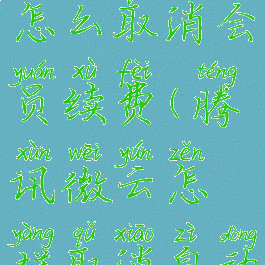 怎么取消会
yuán xù fèi téng
员续费(腾
xùn wēi yún zěn
讯微云怎
yàng qǔ xiāo zì dòng
样取消自动